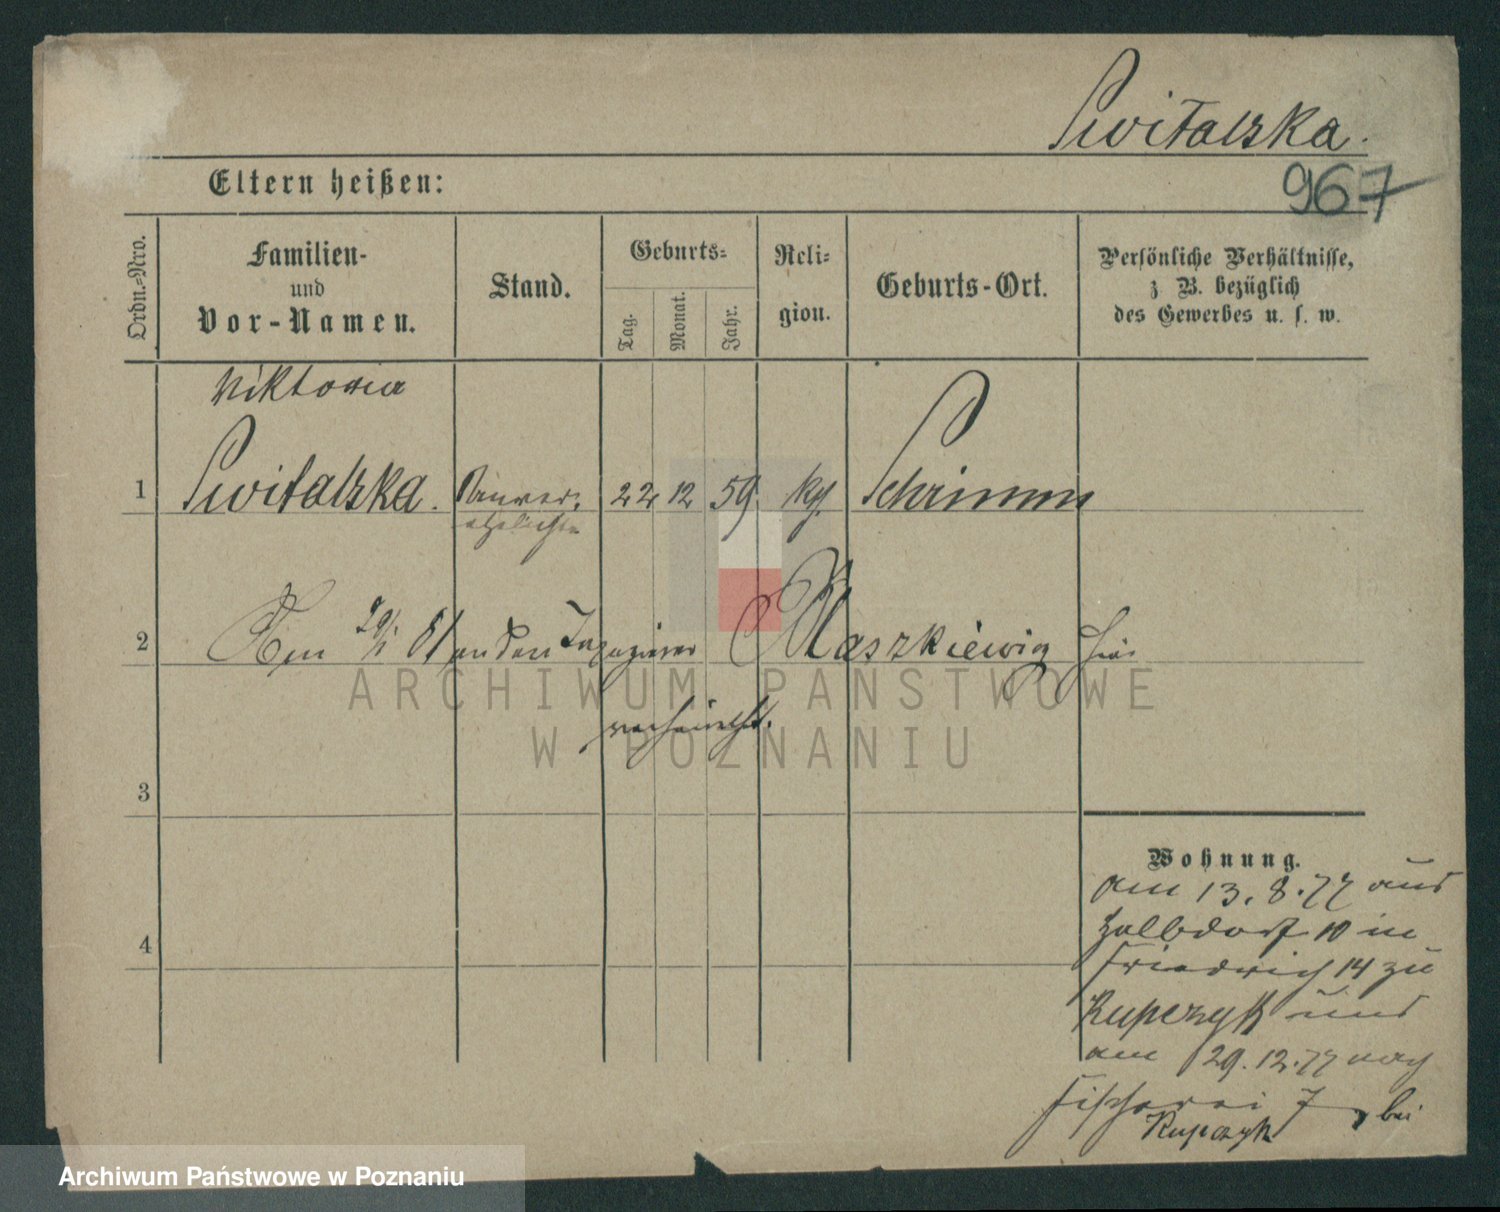 Switalska.
Eltern heißen:
967
Ordn.-Nro.
Familien-
und
Vor-Namen.
Stand.
Geburts-
Tag.
Monat.
Jahr.
Reli-
gion.
Geburts-Ort.
Persönliche Verhältnisse,
z. B. bezüglich
des Gewerbes u. s. w.
Viktoria
1 Switalska. unver- 22 12 59 kg. Schrimm
ehelicht
2 Am 29/1 81 an den Maszkiewiz hier
verheirathet.
3
4
Wohnung.
am 13.8.77 aus
Halbdorf 10 in
Friedrich 14 zu
Kupczyk und
am 29.12.77 nach
Fischerei 7, bei
Kupczyk
ARCHIWUM PAŃSTWOWE
W POZNANIU
Archiwum Państwowe w Poznaniu